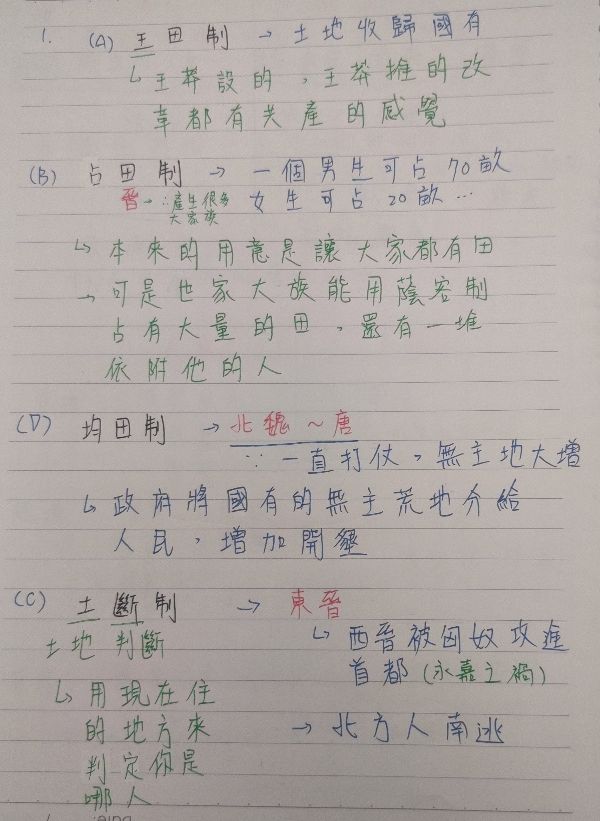 1. (A) 王田制 → 土地收歸國有
↳ 王莽設的，王莽推的改
革都有共產的感覺
(B) 占田制 → 一個男生可占70畝
晉→∵產生很多
大家族
女生可占20畝…
↳ 本來的用意是讓大家都有田
→ 可是世家大族能用蔭客制
占有大量的田，還有一堆
依附他的人
(D) 均田制 → 北魏～唐
∵一直打仗，無主地大增
↳ 政府將國有的無主荒地分給
人民，增加開墾
(C) 土斷制 → 東晉
土地判斷
↳ 西晉被匈奴攻進
首都(永嘉之禍)
↳ 用現在住
的地方來
判定你是
哪人
→ 北方人南逃